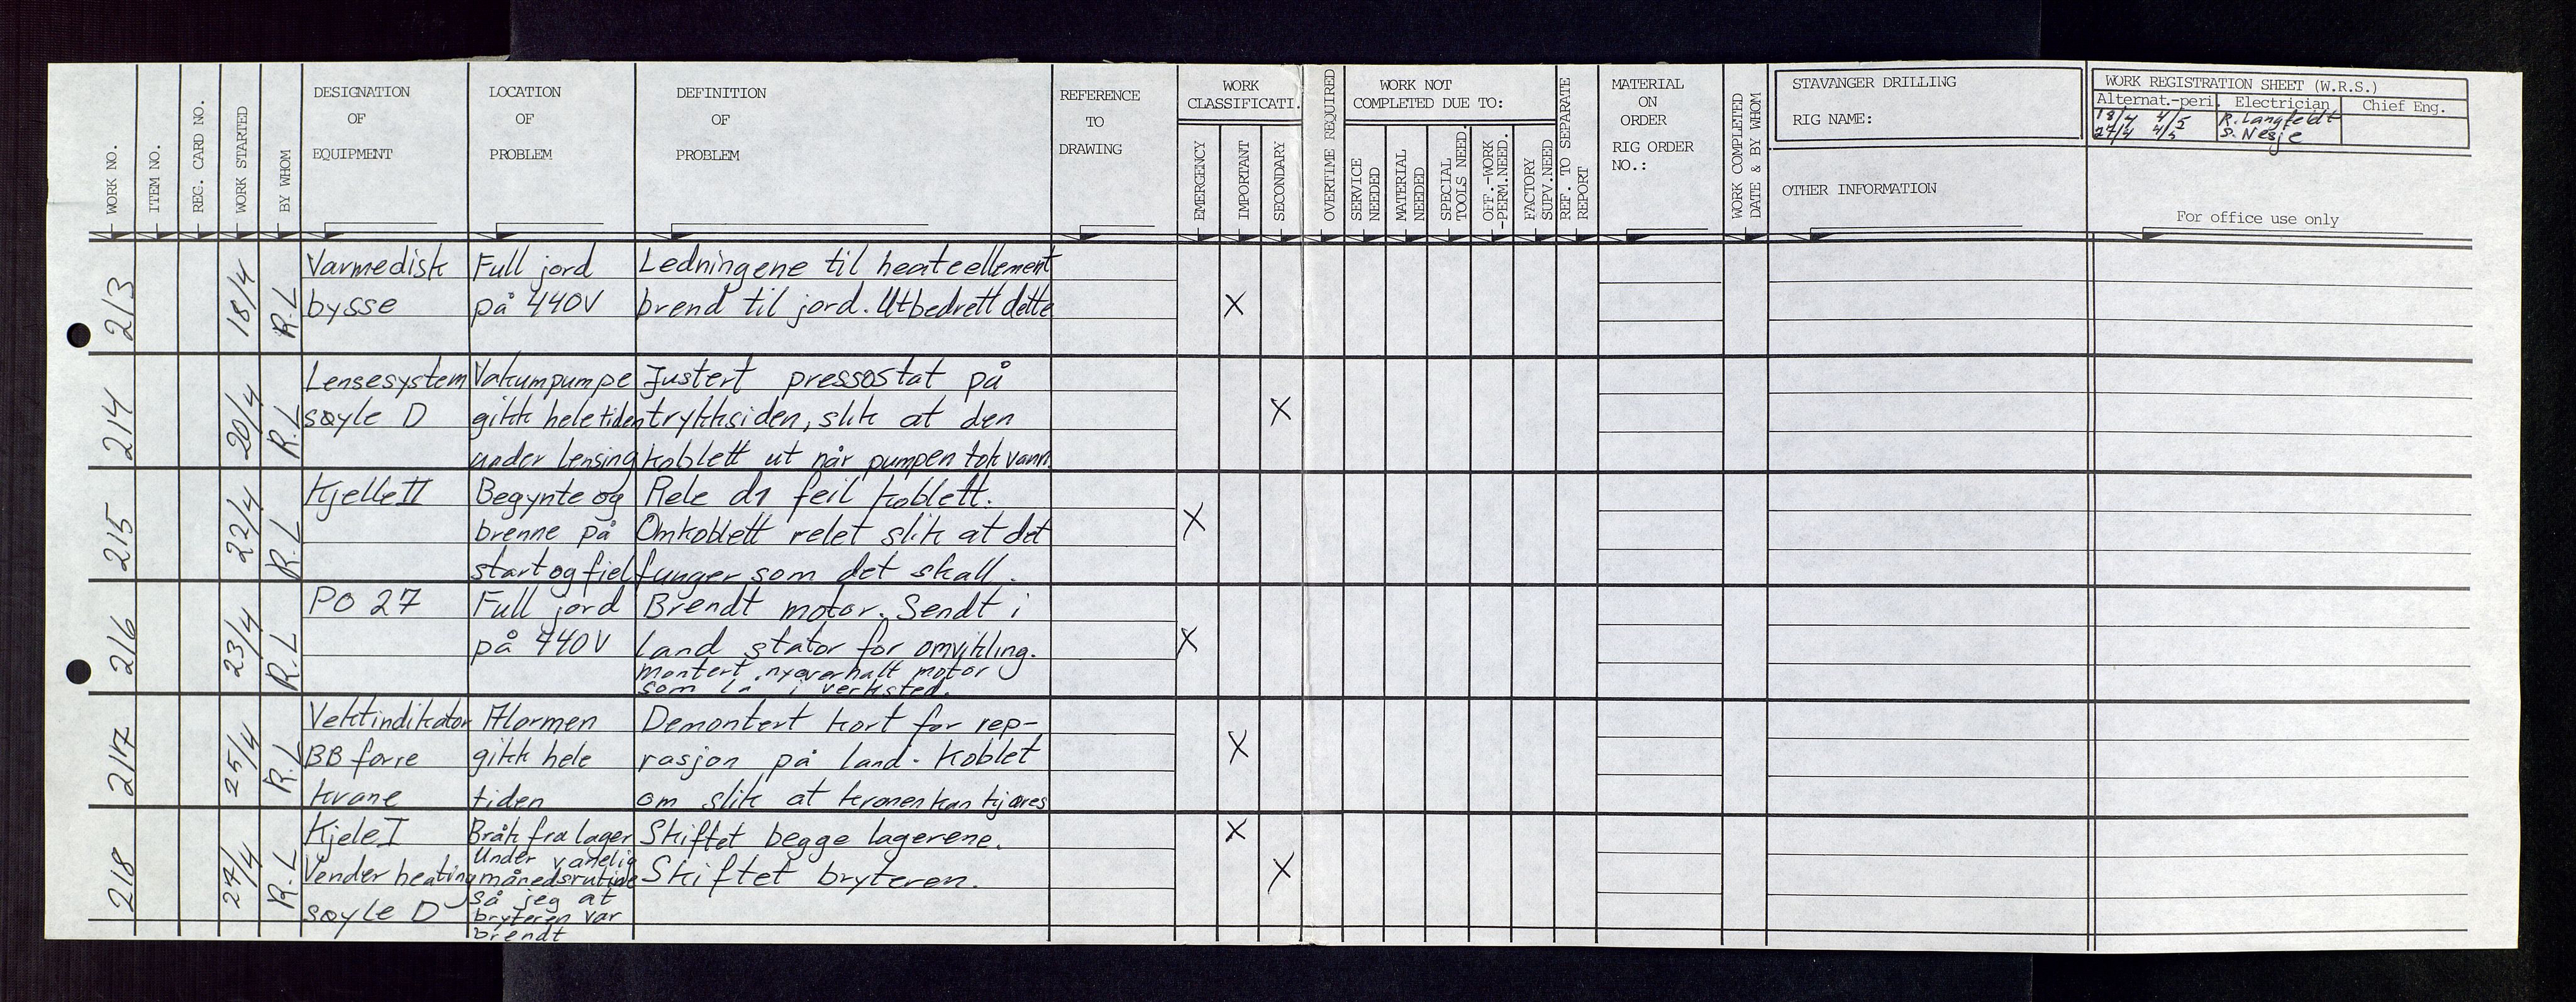 WORK NO.
ITEM NO.
REG. CARD NO.
WORK STARTED
BY WHOM
DESIGNATION
OF
EQUIPMENT
LOCATION
OF
PROBLEM
DEFINITION
OF
PROBLEM
REFERENCE
TO
DRAWING
WORK
CLASSIFICATI.
EMERGENCY
IMPORTANT
SECONDARY
OVERTIME REQUIRED
WORK NOT
COMPLETED DUE TO:
SERVICE
NEEDED
MATERIAL
NEEDED
SPECIAL
TOOLS NEED.
OFF.-WORK
-PERM.NEED.
FACTORY
SUPV.NEED
REF. TO SEPARATE
REPORT
MATERIAL
ON
ORDER
RIG ORDER
NO.:
WORK COMPLETED
DATE & BY WHOM
STAVANGER DRILLING
RIG NAME:
OTHER INFORMATION
WORK REGISTRATION SHEET (W.R.S.)
Alternat.-peri. Electrician Chief Eng.
18/4 4/5 R. Langfeldt
27/4 4/5 S. Nesje
For office use only
213
18/4
R.L
Varmedisk
bysse
Full jord
på 440V
Ledningene til heateellement
brend til jord. Utbedrett dette
X
214
20/4
R.L
Lensesystem
søyle D
Vakumpumpe
gikk hele tiden
under lensing
Justert pressostat på
trykksiden, slik at den
koblett ut når pumpen tok vann.
X
215
22/4
R.L
Kjelle II
Begynte og
brenne på
start og fiel
Rele d1 feil koblett.
Omkoblett relet slik at det
funger som det skall.
X
216
23/4
R.L
PO 27
Full jord
på 440V
Brendt motor. Sendt i
land stator for omvikling.
Montert nyoverhalt motor
som lå i verksted.
X
217
25/4
R.L
Vektindikator
BB forre
krane
Alarmen
gikk hele
tiden
Demontert kort for rep-
rasjon på land. Koblet
om slik at kranen kan kjøres
X
218
27/4
R.L
Kjele I
Bråk fra lager
Skiftet begge lagerene.
X
Vender heating
søyle D
Under vanelig
månedsrutine
så jeg at
bryteren var
brendt
Skiftet bryteren.
X